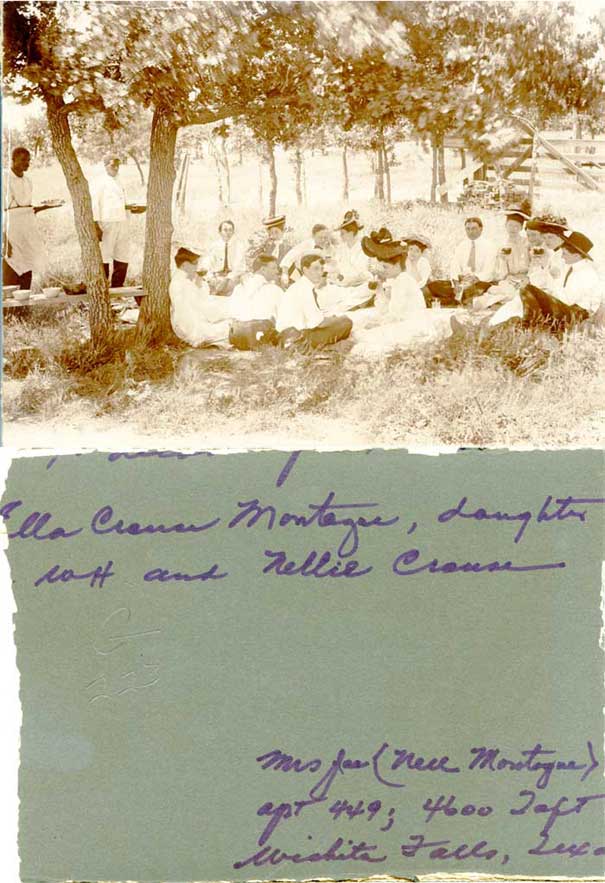 Ella Crouse Montague, daughter
WH and Nellie Crouse
Mrs Joe (Nell Montague)
apt 449; 4600 Taft
Wichita Falls, Texa